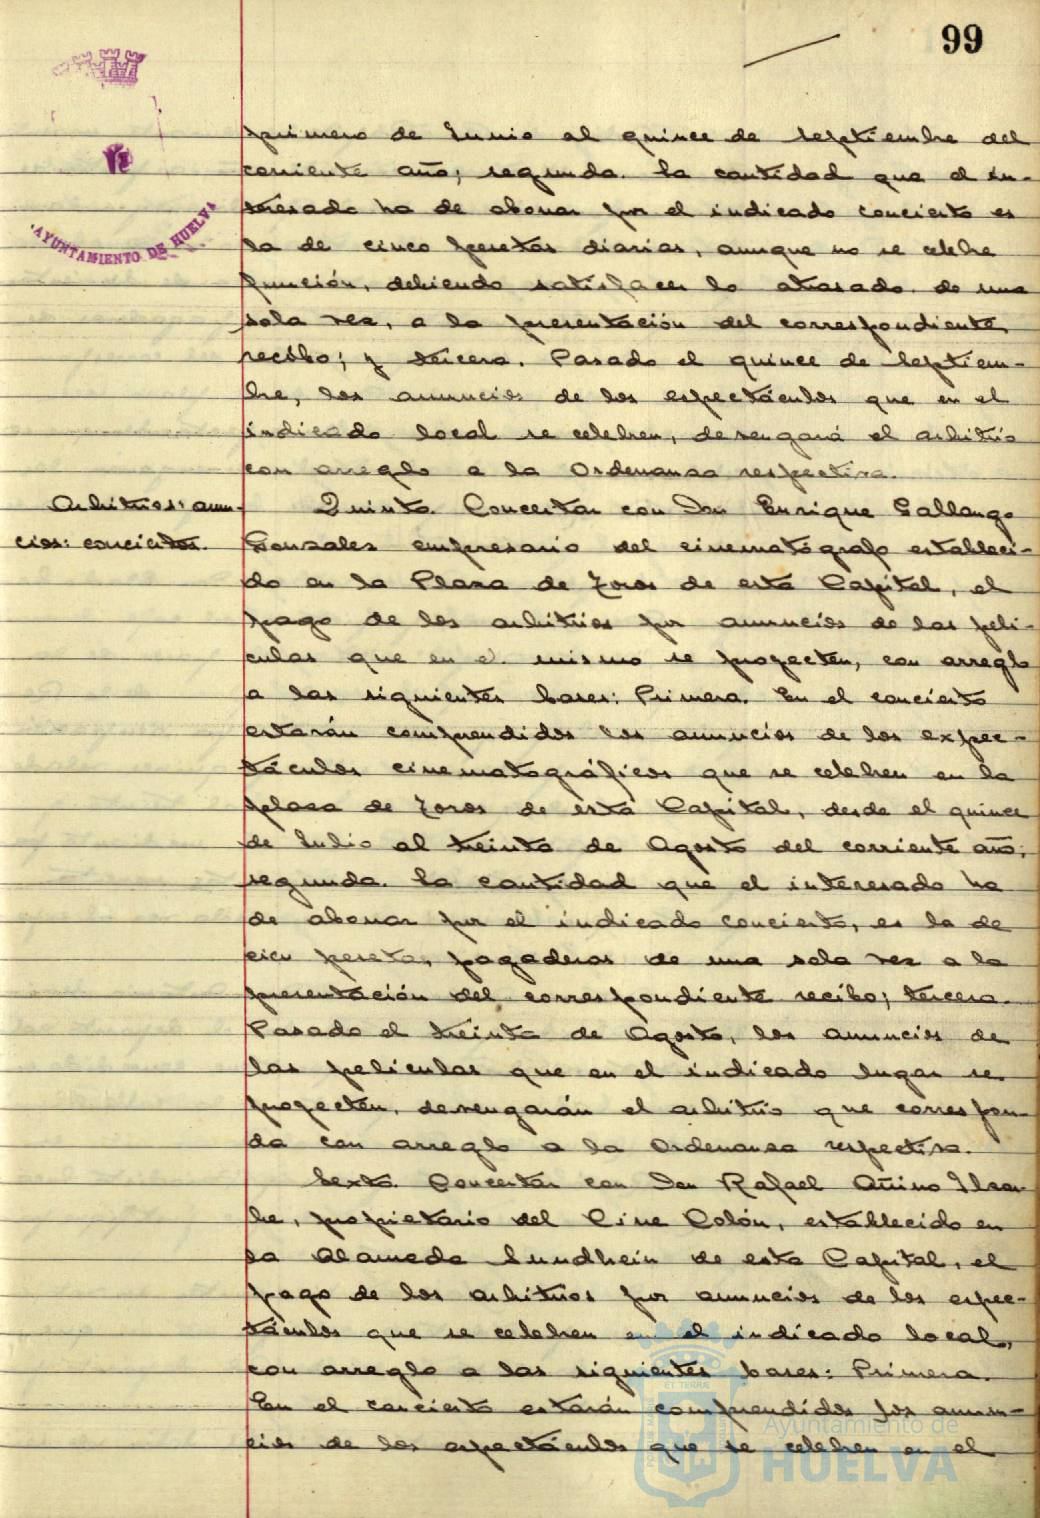 99
AYUNTAMIENTO DE HUELVA
primero de Junio al quince de Septiembre del
corriente año; segunda. La cantidad que el in-
teresado ha de abonar por el indicado concierto es
la de cinco pesetas diarias, aunque no se celebre
función, debiendo satisfacer lo atrasado de una
sola vez, a la presentación del correspondiente
recibo; y tercera. Pasado el quince de Septiem-
bre, los anuncios de los espectáculos que en el
indicado local se celebren, devengará el arbitrio
con arreglo a la Ordenanza respectiva.
Arbitrios: anun-
cios: conciertos.
Quinto. Concertar con Don Enrique Gallango
Gonzales empresario del cinematógrafo estableci-
do en la Plaza de Toros de esta Capital, el
pago de los arbitrios por anuncios de las peli-
culas que en el mismo se proyecten, con arreglo
a las siguientes bases: Primera. En el concierto
estarán comprendidos los anuncios de los expec-
táculos cinematográficos que se celebren en la
plaza de Toros de esta Capital, desde el quince
de Julio al treinta de Agosto del corriente año;
segunda. La cantidad que el interesado ha
de abonar por el indicado concierto, es la de
cien pesetas, pagaderas de una sola vez a la
presentación del correspondiente recibo; tercera.
Pasado el treinta de Agosto, los anuncios de
las peliculas que en el indicado lugar se
proyecten, devengarán el arbitrio que correspon-
da con arreglo a la Ordenanza respectiva.
Sexto. Concertar con Don Rafael
propietario del Cine Colón, establecido en
la Alameda Sundhein de esta Capital, el
pago de los arbitrios por anuncios de los espec-
táculos que se celebren en el indicado local,
con arreglo a las siguientes bases: Primera.
En el concierto estarán comprendidos los anun-
cios de los espectáculos que se celebren en el
Ayuntamiento de
HUELVA